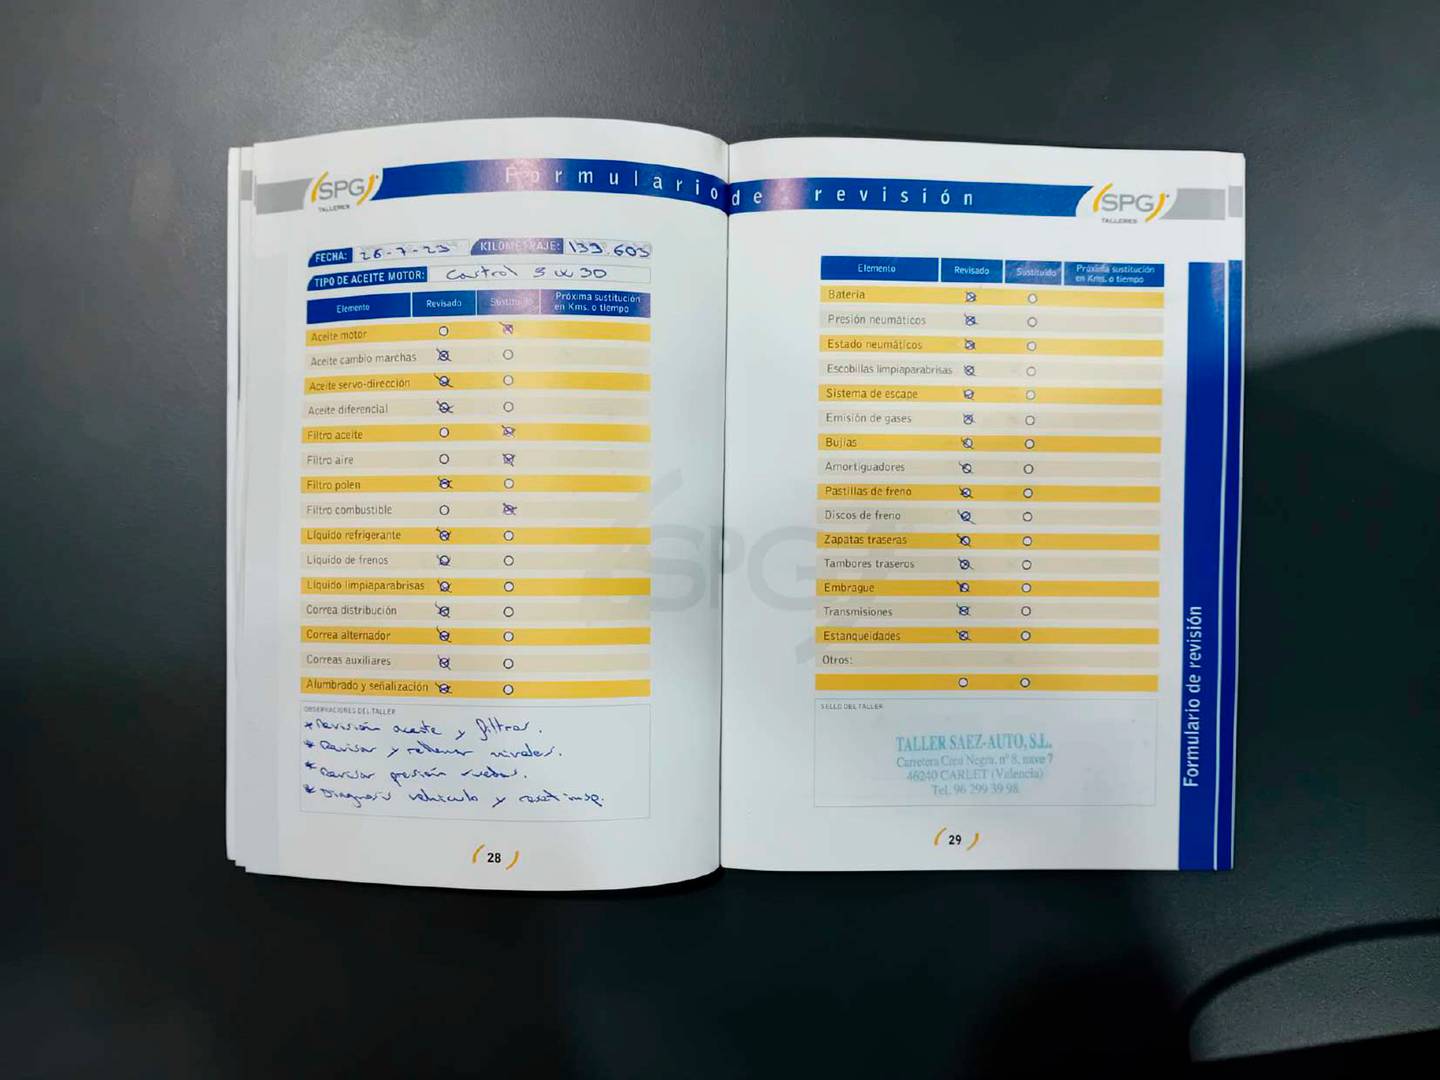 SPG
TALLERES
Formulario de revisión
SPG
TALLERES
FECHA: 26-7-23 KILOMETRAJE: 133.603
TIPO DE ACEITE MOTOR: Castrol 5w30
Elemento Revisado Sustituido Próxima sustitución en Kms. o tiempo
Aceite motor
Aceite cambio marchas
Aceite servo-dirección
Aceite diferencial
Filtro aceite
Filtro aire
Filtro polen
Filtro combustible
Líquido refrigerante
Líquido de frenos
Líquido limpiaparabrisas
Correa distribución
Correa alternador
Correas auxiliares
Alumbrado y señalización
OBSERVACIONES DEL TALLER
* Revisión aceite y filtros.
* Revisar y rellenar niveles.
* Revisar presión ruedas.
* Diagnosis vehiculo y reset insp.
28
Elemento Revisado Sustituido Próxima sustitución en Kms. o tiempo
Batería
Presión neumáticos
Estado neumáticos
Escobillas limpiaparabrisas
Sistema de escape
Emisión de gases
Bujías
Amortiguadores
Pastillas de freno
Discos de freno
Zapatas traseras
Tambores traseros
Embrague
Transmisiones
Estanqueidades
Otros:
SELLO DEL TALLER
TALLER SAEZ-AUTO, S.L.
Carretera Creu Negra, nº 8, nave 7
46240 CARLET (Valencia)
Tel. 96 299 39 98
29
Formulario de revisión
SPG